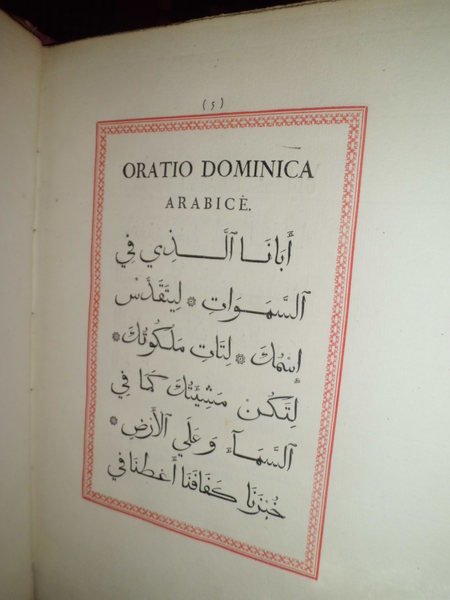 (5)
ORATIO DOMINICA
ARABICÈ.
أَبَانَا ٱلَّـــــذِي فِي
ٱلسَّمَـوَاتِ * لِيَتَقَدَّسْ
إِسْمُكَ * لِتَاتِ مَلَكُوتُكَ *
لِتَكُنْ مَشِيَّتُكَ كَمَا فِي
ٱلسَّمَـآءِ وَعَلَي ٱلْأَرْضِ *
خُبْزَنَا كَفَافَنَا أَعْطِنَا فِي